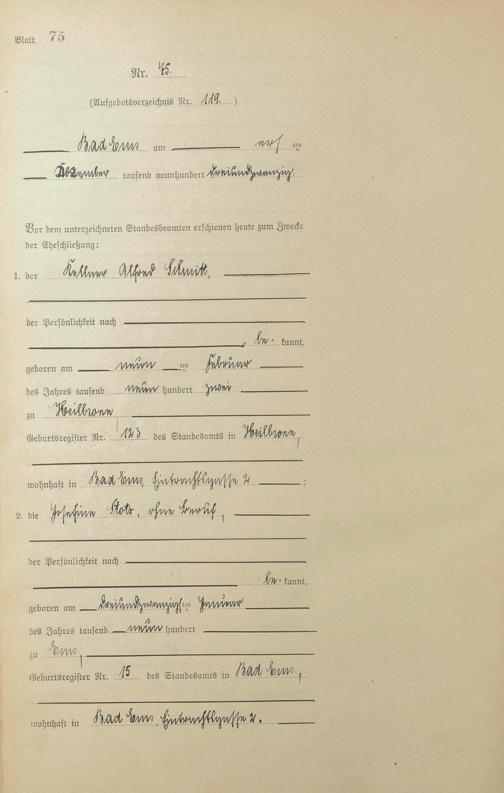 Blatt 75
Nr. 45.
(Aufgebotsverzeichnis Nr. 119.)
Bad Ems am ersten
Dezember tausend neunhundert dreiundzwanzig.
Vor dem unterzeichneten Standesbeamten erschienen heute zum Zwecke
der Eheschließung:
1. der Kellner Alfred Schmitt,
der Persönlichkeit nach
be- kannt,
geboren am neunten Februar
des Jahres tausend neun hundert zwei
zu Heilbronn,
Geburtsregister Nr. 123 des Standesamts in Heilbronn,
wohnhaft in Bad Ems, Eintrachtsgasse 2 ;
2. die Josefine , ohne Beruf,
der Persönlichkeit nach
be- kannt,
geboren am dreiundzwanzigsten Januar
des Jahres tausend neun hundert
zu Ems,
Geburtsregister Nr. 15 des Standesamts in Bad Ems,
wohnhaft in Bad Ems, Eintrachtsgasse 2.